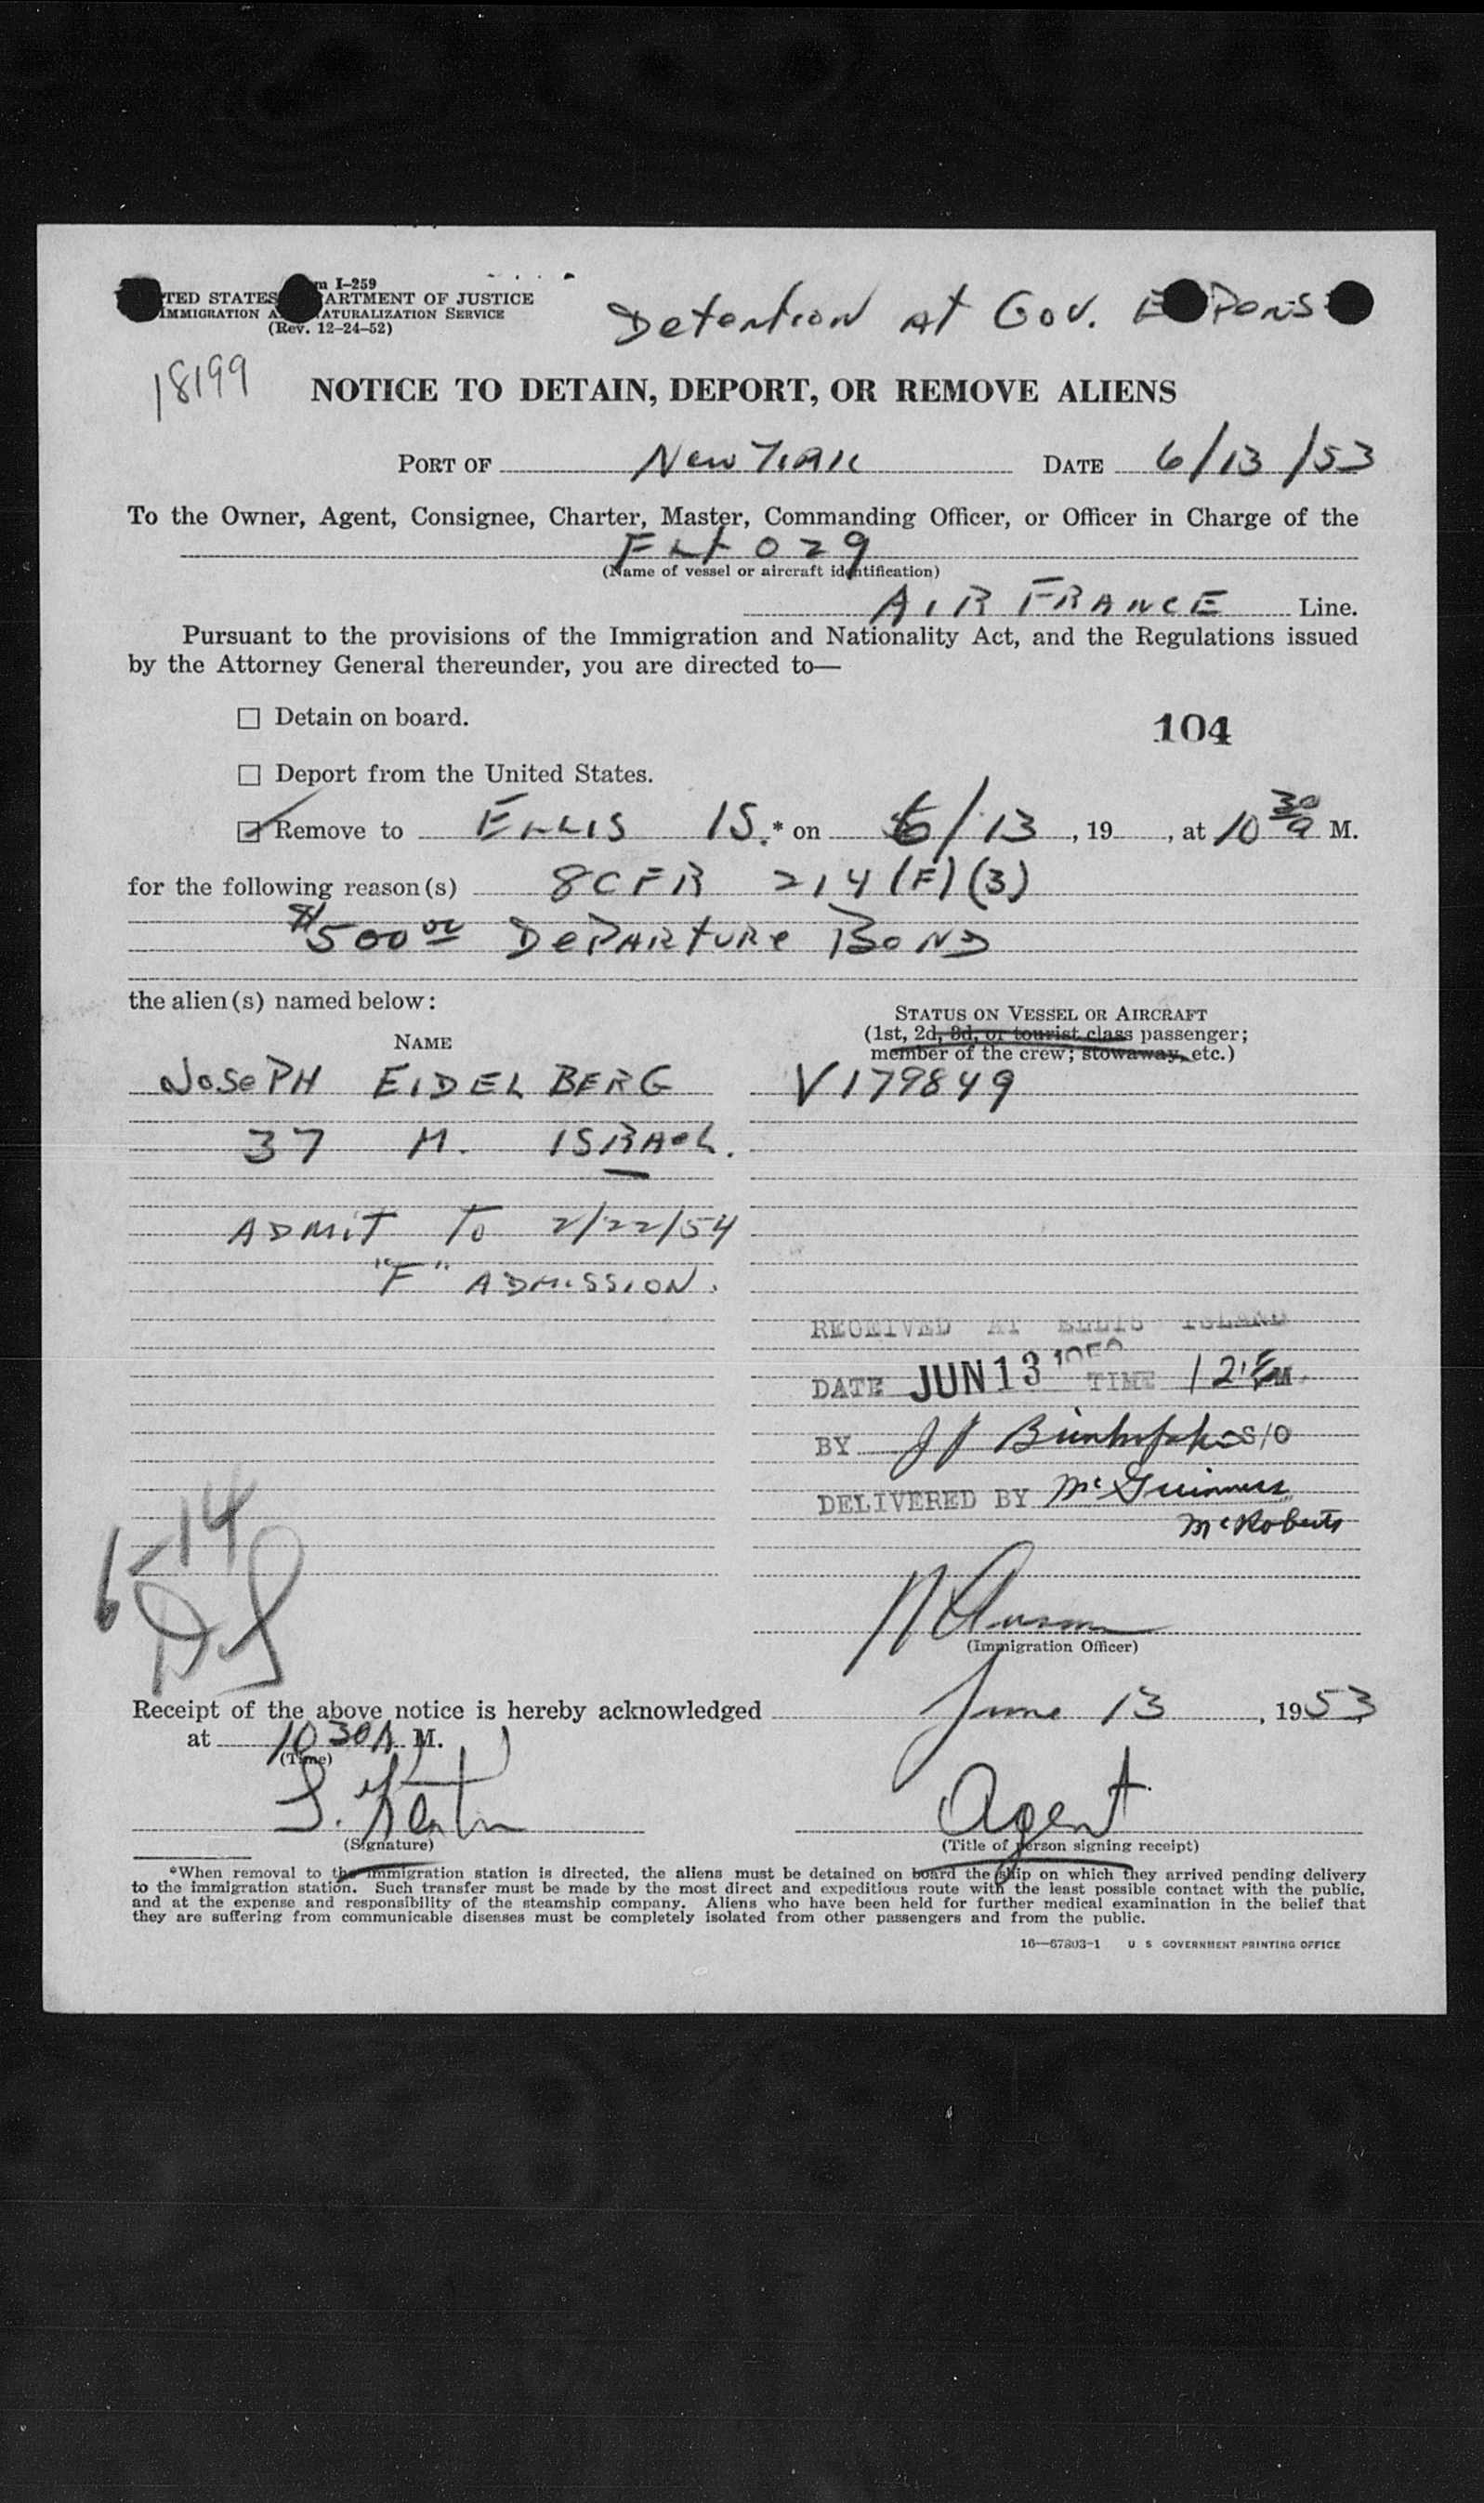 I-259
STATES DEPARTMENT OF JUSTICE
IMMIGRATION AND NATURALIZATION SERVICE
(Rev. 12-24-52)
Detention at Gov.
18199
NOTICE TO DETAIN, DEPORT, OR REMOVE ALIENS
PORT OF New York DATE 6/13/53
To the Owner, Agent, Consignee, Charter, Master, Commanding Officer, or Officer in Charge of the
FLT 029
(Name of vessel or aircraft identification)
AIR FRANCE Line.
Pursuant to the provisions of the Immigration and Nationality Act, and the Regulations issued
by the Attorney General thereunder, you are directed to—
☐ Detain on board.
104
☐ Deport from the United States.
☑ Remove to ELLIS IS.* on 6/13, 19 , at 10 30 a M.
for the following reason(s) 8CFR 214(F)(3)
$500 00 DEPARTURE BOND
the alien(s) named below:
STATUS ON VESSEL OR AIRCRAFT
(1st, 2d, 3d, or tourist class passenger;
member of the crew; stowaway, etc.)
NAME
JOSEPH EIDELBERG V179849
37 M. ISRAEL.
ADMIT TO 2/22/54
"F" ADMISSION.
RECEIVED AT ELLIS ISLAND
DATE JUN 13 TIME M.
BY S/O
DELIVERED BY McGuinness
McRoberts
6-14
(Immigration Officer)
Receipt of the above notice is hereby acknowledged June 13, 1953,
at 10 30A M.
(Time)
Agent
(Signature)
(Title of person signing receipt)
*When removal to the immigration station is directed, the aliens must be detained on board the ship on which they arrived pending delivery
to the immigration station. Such transfer must be made by the most direct and expeditious route with the least possible contact with the public,
and at the expense and responsibility of the steamship company. Aliens who have been held for further medical examination in the belief that
they are suffering from communicable diseases must be completely isolated from other passengers and from the public.
16—67803-1 U S GOVERNMENT PRINTING OFFICE